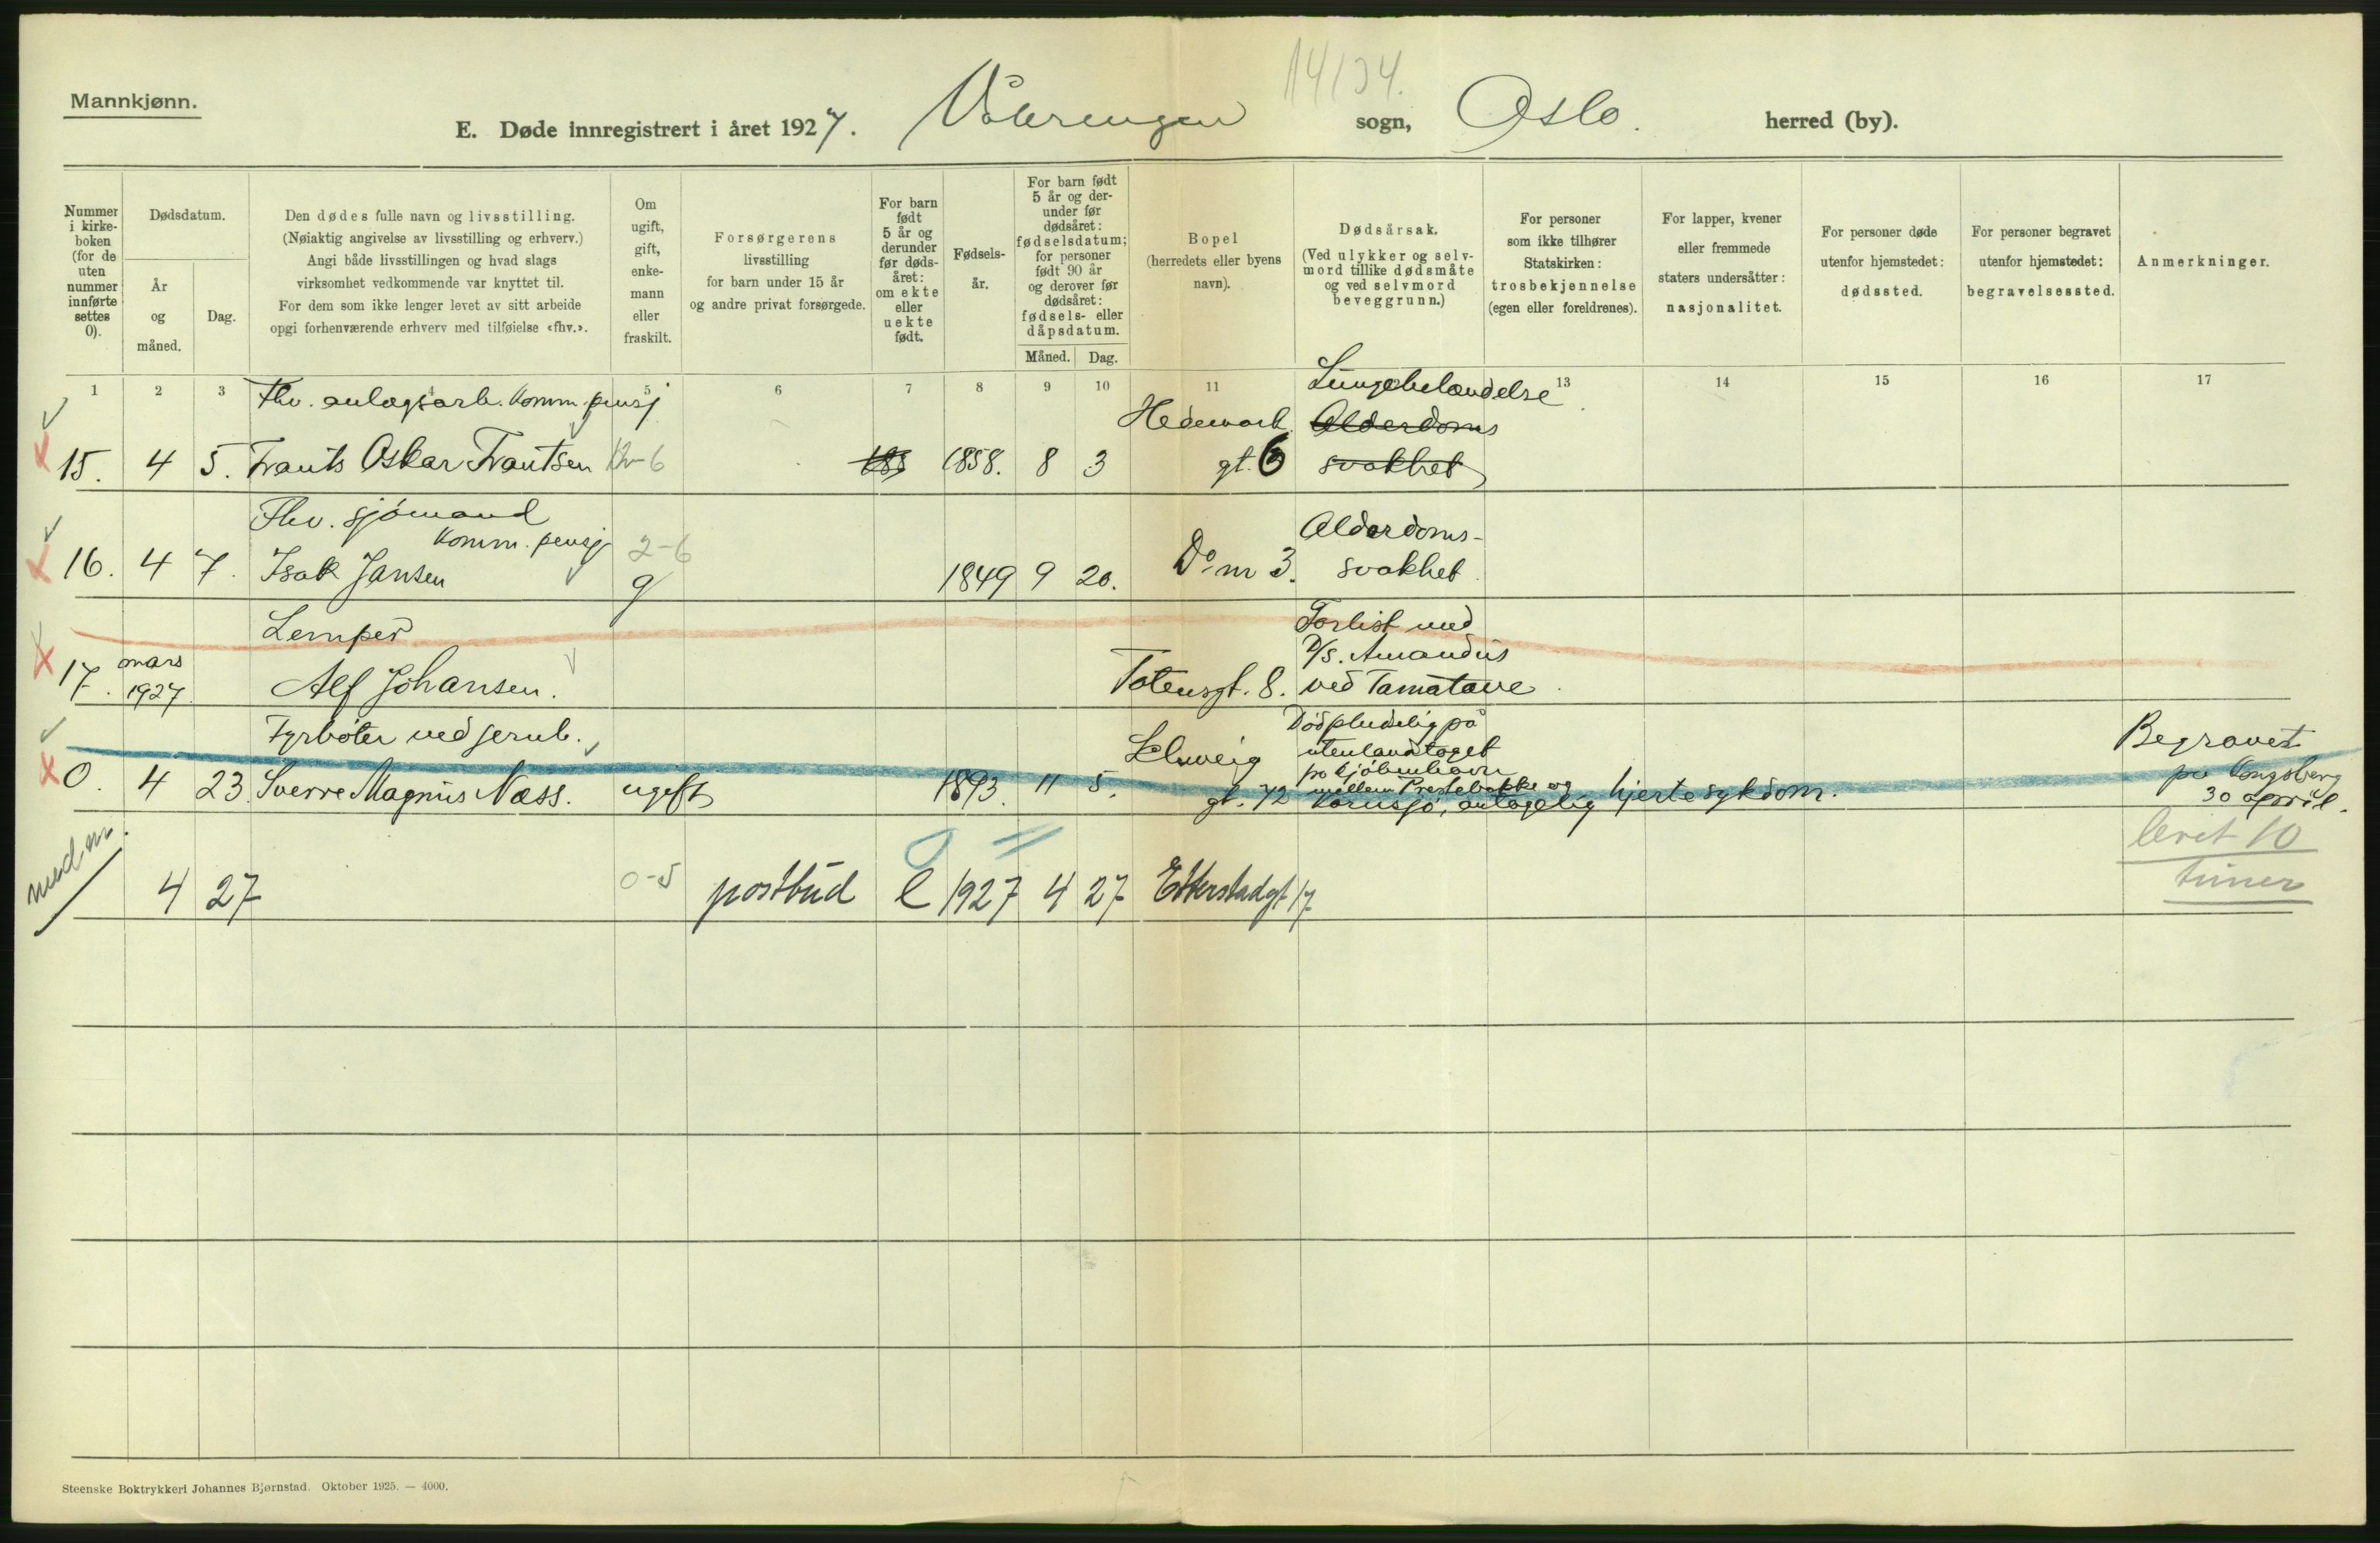 Mannkjønn.
14/34.
E. Døde innregistrert i året 1927. Vålerengen sogn, Oslo. herred (by).
Nummer i kirke-boken (for de uten nummer innførte settes 0).
Dødsdatum.
År og måned.
Dag.
Den dødes fulle navn og livsstilling.
(Nøiaktig angivelse av livsstilling og erhverv.)
Angi både livsstillingen og hvad slags
virksomhet vedkommende var knyttet til.
For dem som ikke lenger levet av sitt arbeide
opgi forhenværende erhverv med tilføielse «fhv.».
Om ugift, gift, enke-mann eller fraskilt.
Forsørgerens
livsstilling
for barn under 15 år
og andre privat forsørgede.
For barn født 5 år og derunder før døds-året: om ekte eller uekte født.
Fødsels-år.
For barn født 5 år og der-under før dødsåret: fødselsdatum; for personer født 90 år og derover før dødsåret: fødsels- eller dåpsdatum.
Måned. Dag.
Bopel
(herredets eller byens navn).
Dødsårsak.
(Ved ulykker og selv-mord tillike dødsmåte og ved selvmord beveggrunn.)
For personer
som ikke tilhører
Statskirken:
trosbekjennelse
(egen eller foreldrenes).
For lapper, kvener
eller fremmede
staters undersåtter:
nasjonalitet.
For personer døde
utenfor hjemstedet:
dødssted.
For personer begravet
utenfor hjemstedet:
begravelsessted.
Anmerkninger.
1 2 3 5 6 7 8 9 10 11 13 14 15 16 17
Fhv. anlægsarb. Komm. pensj
Lungebetændelse
Hedemark. Alderdoms
15. 4 5. Frants Oskar Frantsen 188 1858. 8 3 gt. 6 svakhet
Fhv. sjömand
Komm. pensj. 2-6
Alderdoms-
16. 4 7. Isak Jansen g 1849 9 20. Do nr 3. svakhet
Lemper
Forlist med
D/S. Amandus
17. mars 1927. Alf Johansen. Totensgt. 8. ved Tamatave.
Fyrböter ved jernb.
Död pludselig på
utenlandstoget
fra Kjöbenhavn
mellem Prestebakke og
Begravet
på Kongsberg
30 april.
0. 4 23. Sverre Magnus Næss. ugift 1893. 11 5. Schweig gt. 72 Kornsjö, antagelig hjertesykdom.
levet 10
timer
med nr.
4 27 0-5 postbud E 1927 4 27 Etterstadgt 17
Steenske Boktrykkeri Johannes Bjørnstad. Oktober 1925. — 4000.